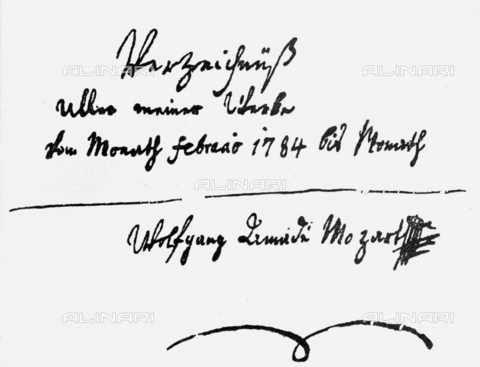 Verzeichnüß
ALINARI ALINARI
aller meiner Werke
vom Monath febraio 1784 bis Monath
ALINARI
Wolfgang Amadè Mozart
ALINARI ALINARI